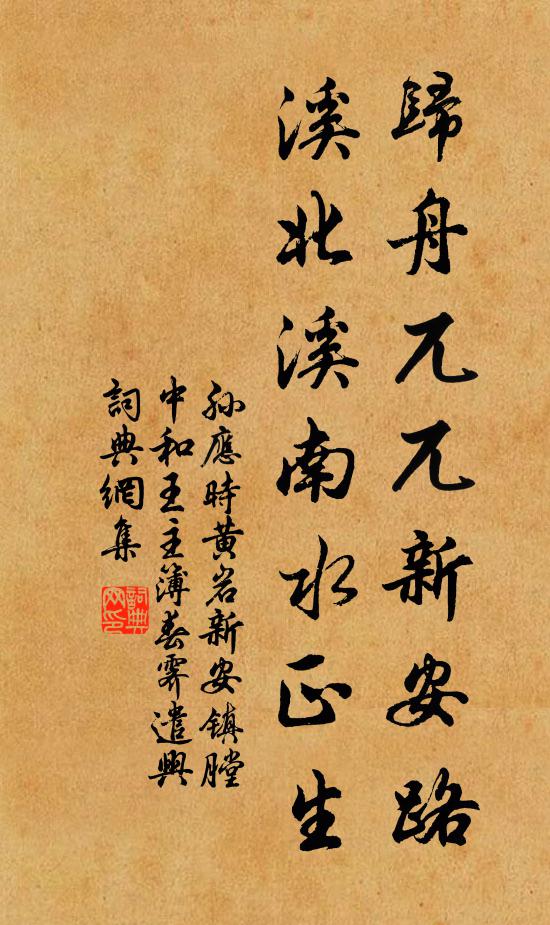 歸舟兀兀新安路
溪北溪南水正生
孫應時黃岩新安鎮膛
中和王主簿春霽遣興
詞典網集
詞典網印